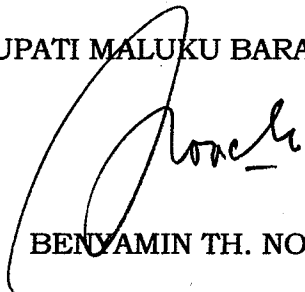 UPATI MALUKU BARA
BENYAMIN TH. NO